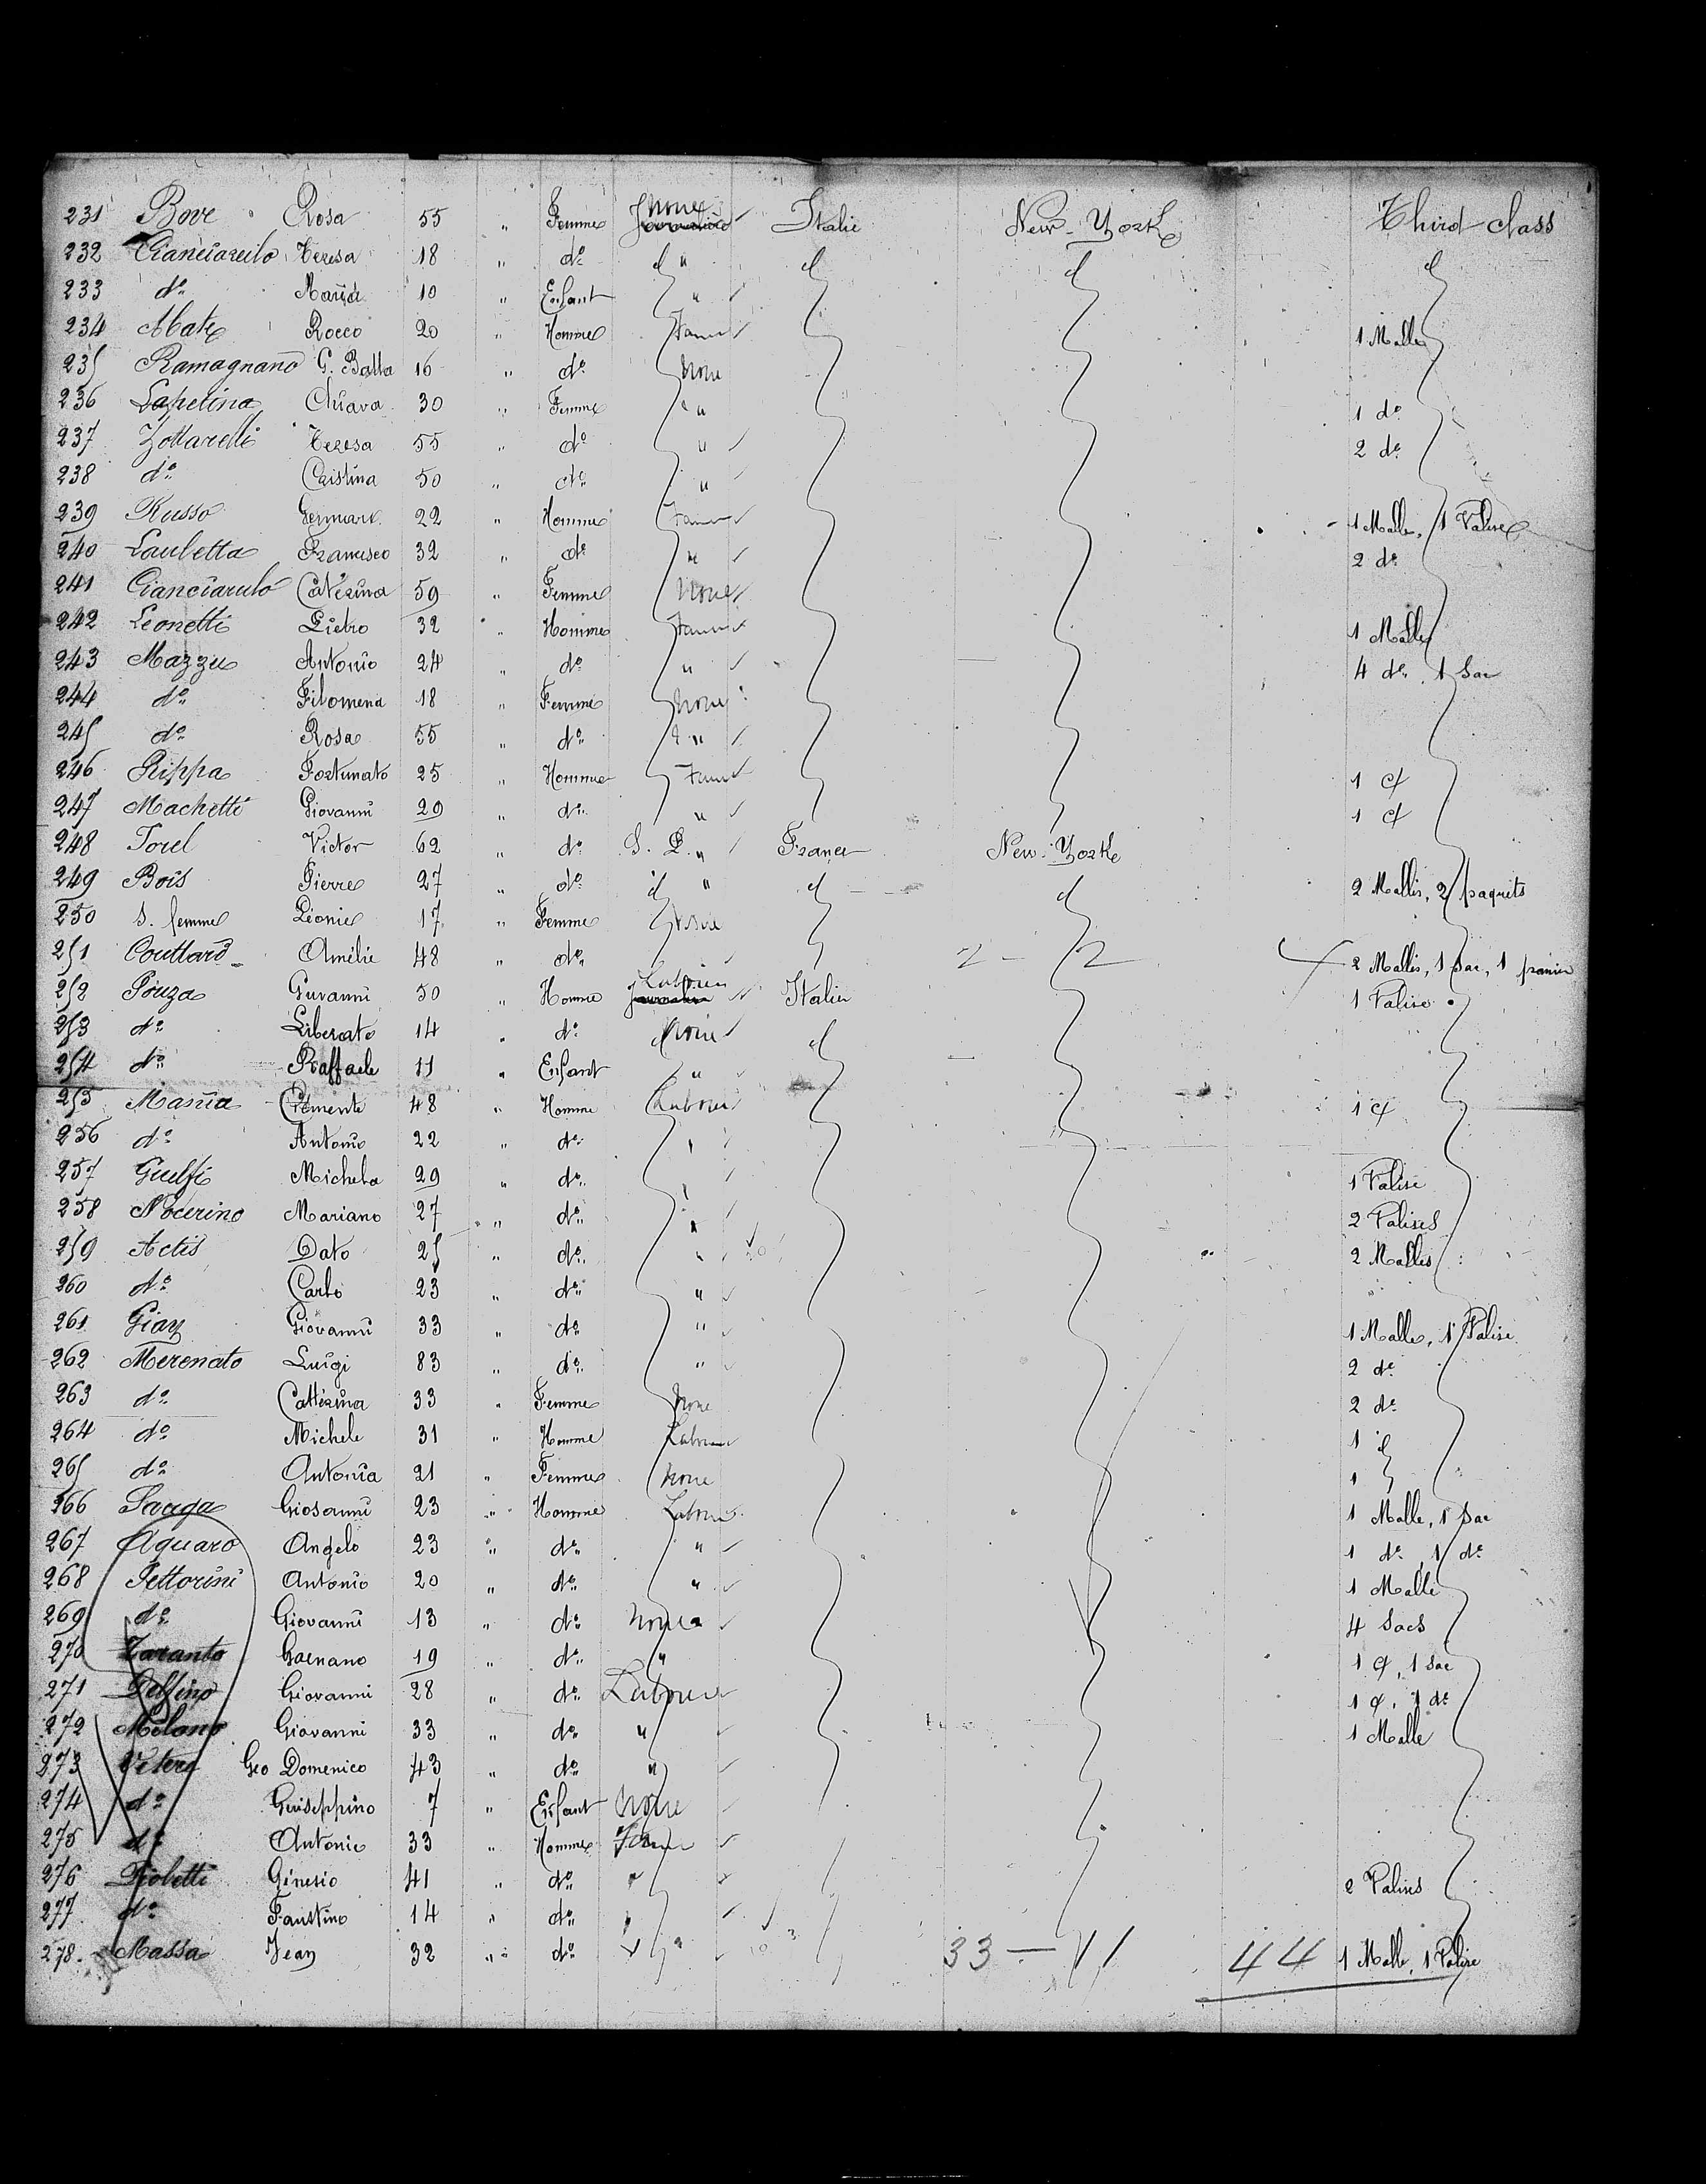 231 Bove Rosa 55 " Femme None Journalière Italie New-York Third class
232 Cianciarulo Teresa 18 " do d " d d d
233 do Maria 10 " Enfant "
234 Abate Rocco 20 " Homme Farmer 1 Malle
235 Ramagnano G. Batta 16 " do None
236 Lapetina Chiava 30 " Femme " 1 do
237 Zottarelli Teresa 55 " do " 2 do
238 do Cristina 50 " do "
239 Russo Gennaro 22 " Homme Farmer 1 Malle, 1 Valise
240 Laubetta Francisco 32 " do " 2 do
241 Cianciarulo Caterina 59 " Femme None
242 Leonetti Pietro 32 " Homme Farmer 1 Malle
243 Mazzu Antonio 24 " do " 4 do 1 Sac
244 do Filomena 18 " Femme None
245 do Rosa 55 " do "
246 Rippa Fortunato 25 " Homme Farmer 1 d
247 Machetti Giovanni 29 " do " 1 d
248 Torel Victor 62 " do S. P. " France New-York
249 Bois Pierre 27 " do d " d d 2 Malles, 2 paquets
250 s. femme Léonie 17 " Femme None
251 Couttard Amélie 48 " do 2 - 2 2 Malles, 1 sac, 1 panier
252 Pouza Giovanni 50 " Homme Laborer Journalier Italie 1 Valise
253 do Liberato 14 " do None d
254 do Raffaele 11 " Enfant "
255 Mania Clemente 48 " Homme Laborer 1 d
256 do Antonio 22 " do "
257 Guelfi Michele 29 " do " 1 Valise
258 Nocerino Mariano 27 " do " 2 Valises
259 Actis Dato 25 " do " 2 Malles
260 do Carlo 23 " do "
261 Giay Giovanni 33 " do " 1 Malle, 1 Valise
262 Merenato Luigi 83 " do " 2 do
263 do Catterina 33 " Femme None 2 do
264 do Michele 31 " Homme Laborer 1 d
265 do Antonia 21 " Femme None 1
266 Giovanni 23 " Homme Laborer 1 Malle, 1 sac
267 Aquaro Angelo 23 " do " 1 do, 1 do
268 Pettorini Antonio 20 " do " 1 Malle
269 do Giovanni 13 " do None 4 Sacs
270 Taranto Gaenano 19 " do " 1 d, 1 sac
271 Delfino Giovanni 28 " do Laborer 1 d, 1 do
272 Milano Giovanni 33 " do " 1 Malle
273 Vetere Geo Domenico 43 " do "
274 do Guiseppino 7 " Enfant None
275 do Antonio 33 " Homme Farmer
276 Piobetti Ginesio 41 " do " 2 Valises
277 do Faustino 14 " do "
278 Massa Jean 32 " do " 33 - 11 44 1 Malle, 1 Valise